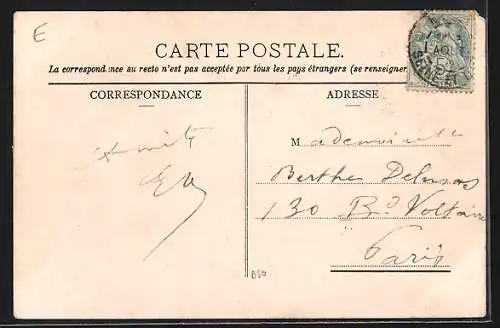 E
CARTE POSTALE.
La correspondance au recto n'est pas acceptée par tous les pays étrangers (se renseigner
CORRESPONDANCE
ADRESSE
Mademoiselle
Berthe
130 Bd Voltaire
Paris